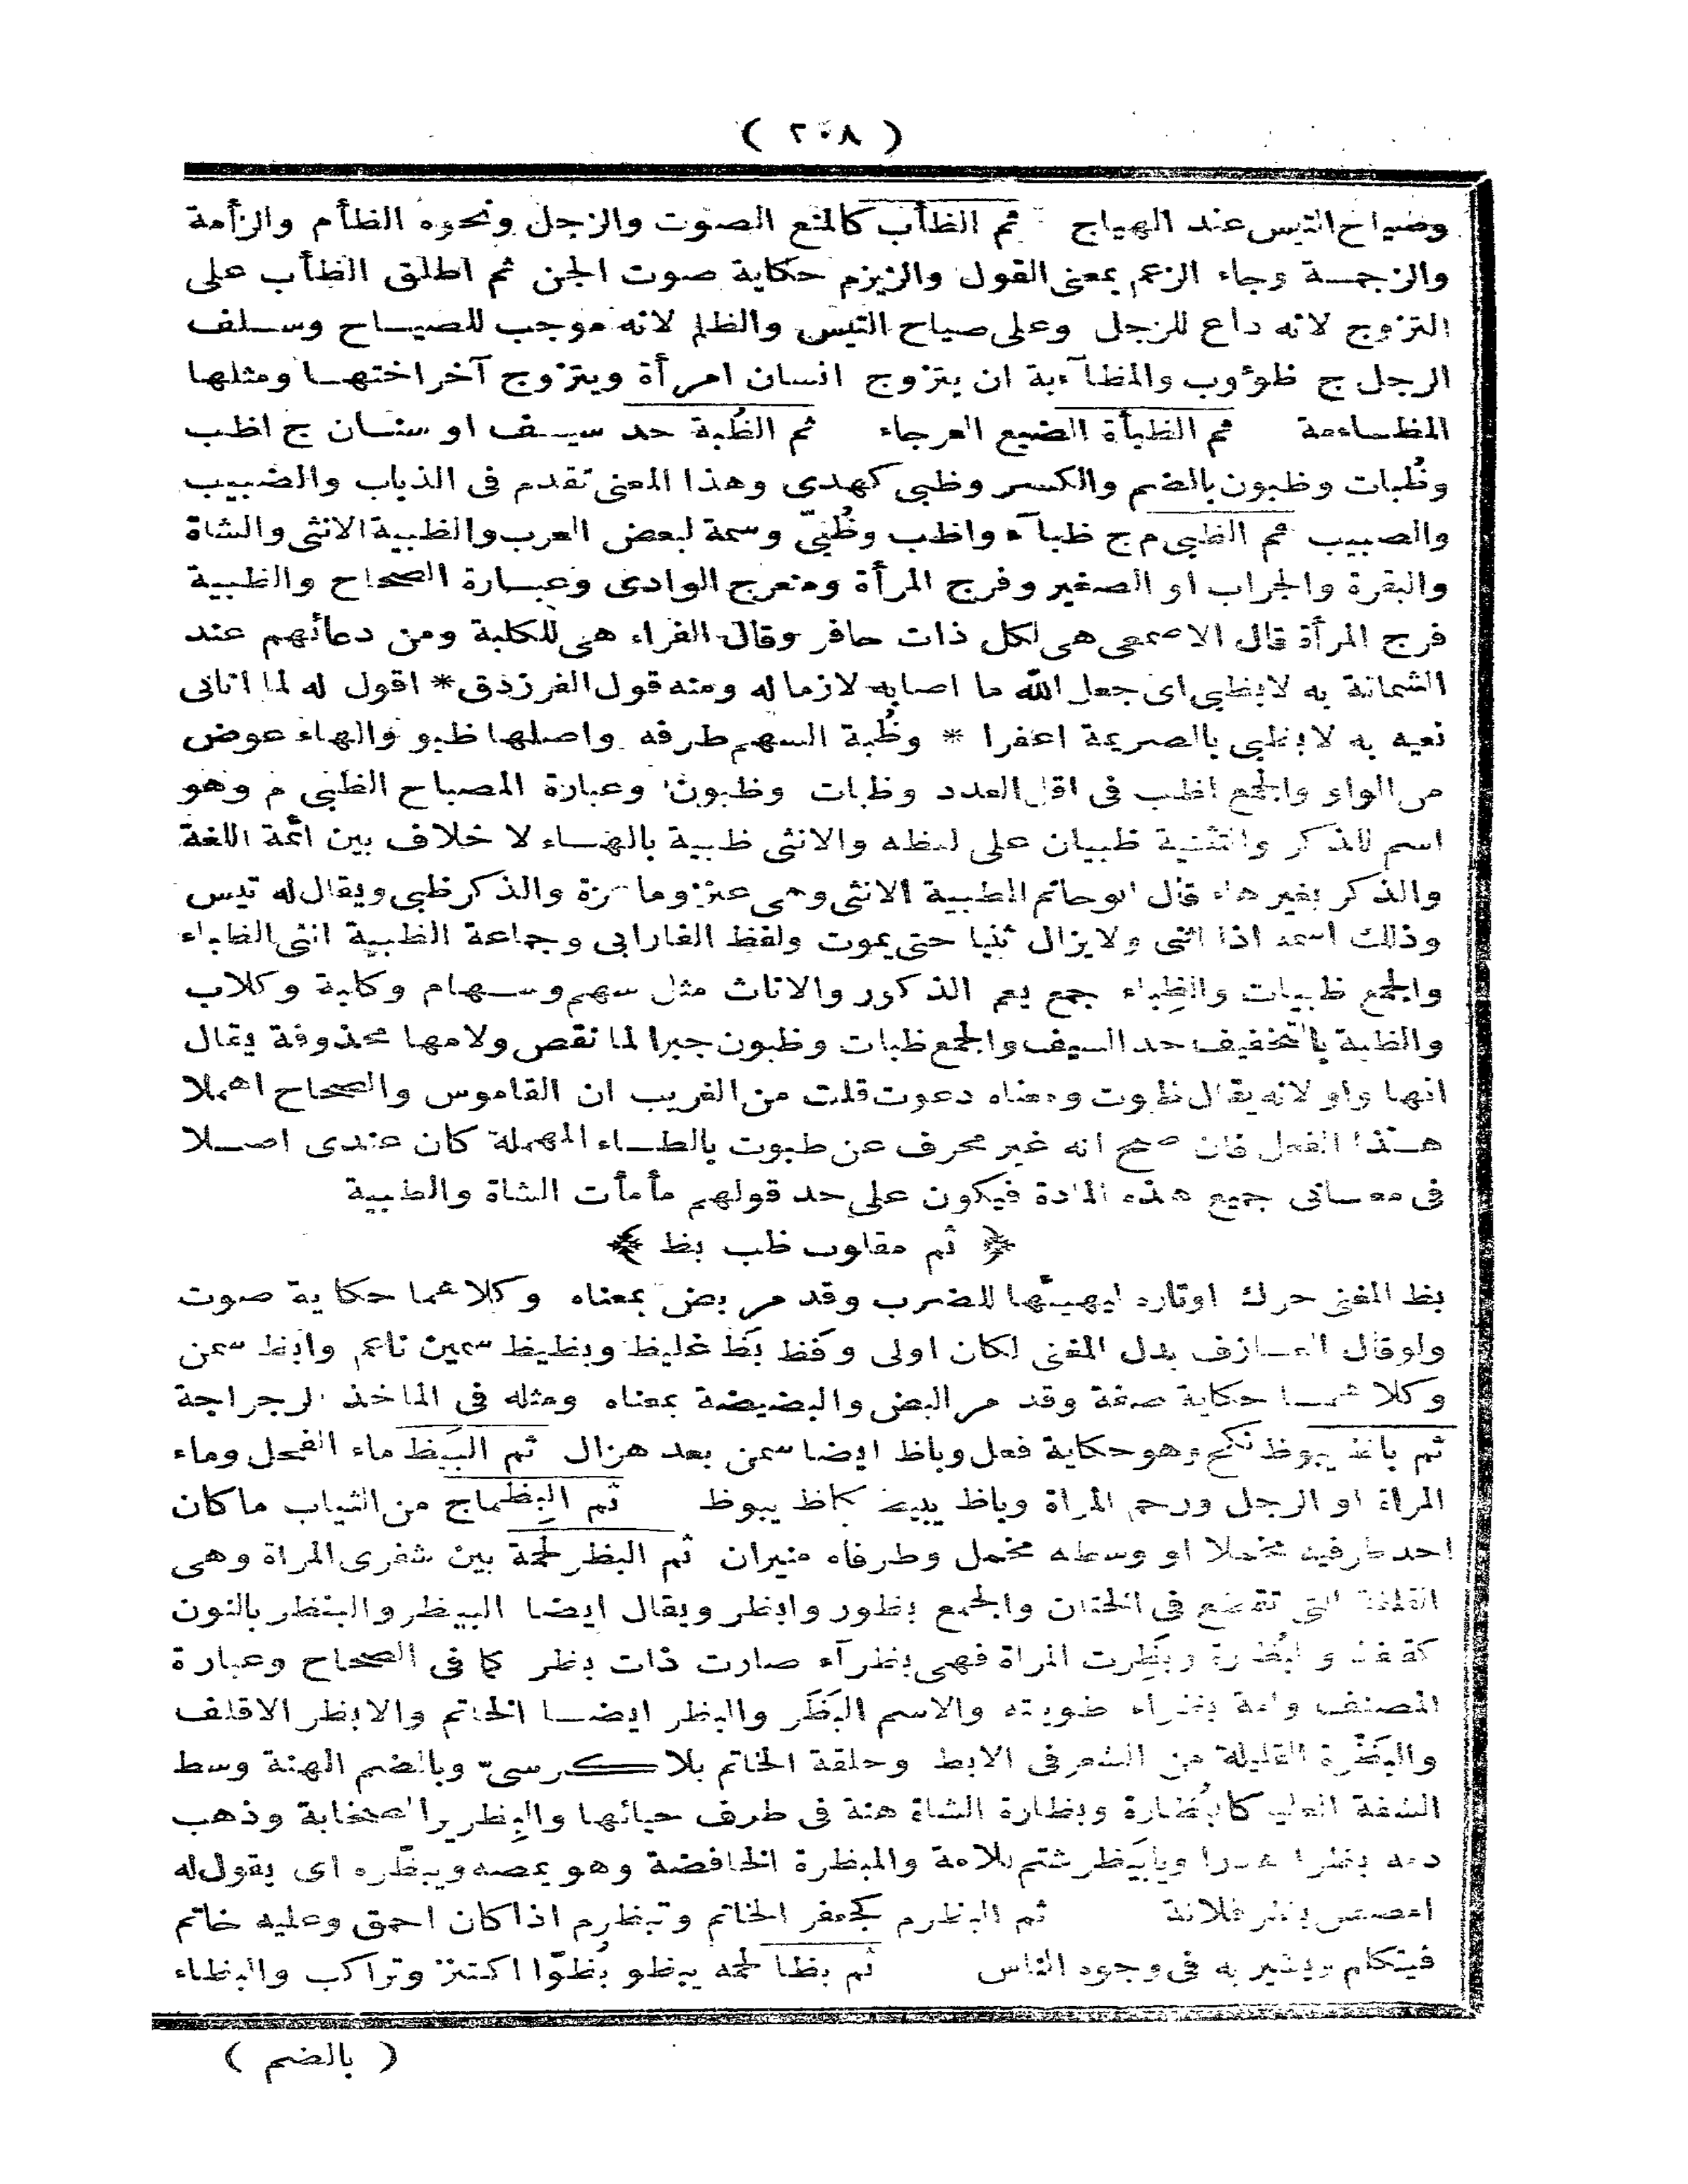 ( ٢٠٨ )
وصياح التيس عند الهياج ثم الظأب كالمنع الصوت والزجل ونحوه الظأم والزأمة
والزجمة وجاء الزعم بمعنى القول والزيزم حكاية صوت الجن ثم اطلق الظأب على
التزوج لانه داع للزجل وعلى صياح التيس والظلم لانه موجب للصياح وسلف
الرجل ج ظؤوب والمظآءبة ان يتزوج انسان امرأة ويتزوج آخر اختها ومثلها
المظاءمة ثم الظبأة الضبع العرجاء ثم الظُبة حد سيف او سنان ج اظب
وظُبات وظبون بالضم والكسر وظبى كهدى وهذا المعنى تقدم فى الذباب والضبيب
والصبيب ثم الظبى م ج ظبآء واظب وظُبىّ وسمة لبعض العرب والظبية الانثى والشاة
والبقرة والجراب او الصغير وفرج المرأة ومنعرج الوادى وعبارة الصحاح والظبية
فرج المرأة قال الاصمعى هى لكل ذات حافر وقال الفراء هى للكلبة ومن دعائهم عند
الشماتة به لا بظبى اى جعل الله ما اصابه لازما له ومنه قول الفرزدق * اقول له لما اتانى
نعيه به لا بظبى بالصريمة اعفرا * وظُبة السهم طرفه واصلها ظبو والهاء عوض
من الواو والجمع اظب فى اقل العدد وظبات وظبون وعبارة المصباح الظبى م وهو
اسم للذكر والتثنية ظبيان على لفظه والانثى ظبية بالهاء لا خلاف بين ائمة اللغة
والذكر بغير هاء قال ابو حاتم الظبية الانثى وهى عنز وماعزة والذكر ظبى ويقال له تيس
وذلك اسمه اذا اثنى ولا يزال ثنيا حتى يموت ولفظ الفارابى وجماعة الظبية انثى الظباء
والجمع ظبيات والظِباء جمع يعم الذكور والاناث مثل سهم وسهام وكلبة وكلاب
والظبة بالتخفيف حد السيف والجمع ظبات وظبون جبرا لما نقص ولامها محذوفة يقال
انها واو لانه يقال ظبوت ومعناه دعوت قلت من الغريب ان القاموس والصحاح اهملا
هذا الفعل فان صح انه غير محرف عن طبوت بالطاء المهملة كان عندى اصلا
فى معانى جميع هذه المادة فيكون على حد قولهم مأمأت الشاة والظبية
﴿ ثم مقلوب ظب بظ ﴾
بظ المغنى حرك اوتاره ليهيئها للضرب وقد مر بض بمعناه وكلاهما حكاية صوت
ولو قال العازف بدل المغنى لكان اولى وفظ بَظ غليظ وبظيظ سمين ناعم وابظ سمن
وكلاهما حكاية صفة وقد مر البض والبضيضة بمعناه ومثله فى الماخذ الرجراجة
ثم باظ يبوظ نكح وهو حكاية فعل وباظ ايضا سمن بعد هزال ثم البَيظ ماء الفحل وماء
المراة او الرجل ورحم المراة وباظ يبيظ كباظ يبوظ ثم البِظماج من الثياب ما كان
احد طرفيه مخملا او وسطه مخمل وطرفاه منيران ثم البظر لحمة بين شفرى المراة وهى
القلفة التى تقطع فى الختان والجمع بظور وابظر ويقال ايضا البيظر والبنظر بالنون
كقنفذ والبُظارة وبَظِرت المراة فهى بظرآء صارت ذات بظر كما فى الصحاح وعبارة
المصنف وامة بظراء طويلته والاسم البَظَر والبظر ايضا الخاتم والابظر الاقلف
والبَظْرة القليلة من الشعر فى الابط وحلقة الخاتم بلا كرسىّ وبالضم الهنة وسط
الشفة العليا كالبُظارة وبظارة الشاة هنة فى طرف حيائها والبِظرير الصخابة وذهب
دمه بظرا هدرا ويا بَيظر شتم للامة والمبظرة الخافضة وهو يمصه ويبظّره اى يقول له
امصص بظر فلانة ثم البظرم كجعفر الخاتم وتبظرم اذا كان احمق وعليه خاتم
فيتكلم ويشير به فى وجوه الناس ثم بظا لحمه يبظو بُظوّا اكتنز وتراكب والبظاء
( بالضم )